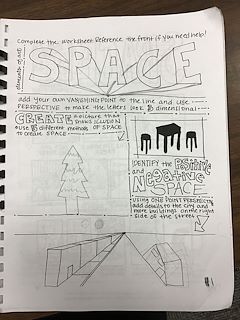 complete the worksheet. Reference the front if you need help!
elements of art:
SPACE
add your own VANISHING POINT to the line and use
PERSPECTIVE to make the letters look 3 dimensional.
CREATE a picture that
shows ILLUSION
use 3 different methods OF SPACE
to create SPACE
IDENTIFY the POSITIVE
and
NEGATIVE
SPACE
using ONE POINT PERSPECTIVE
add details to the city and
more buildings on the right
side of the street